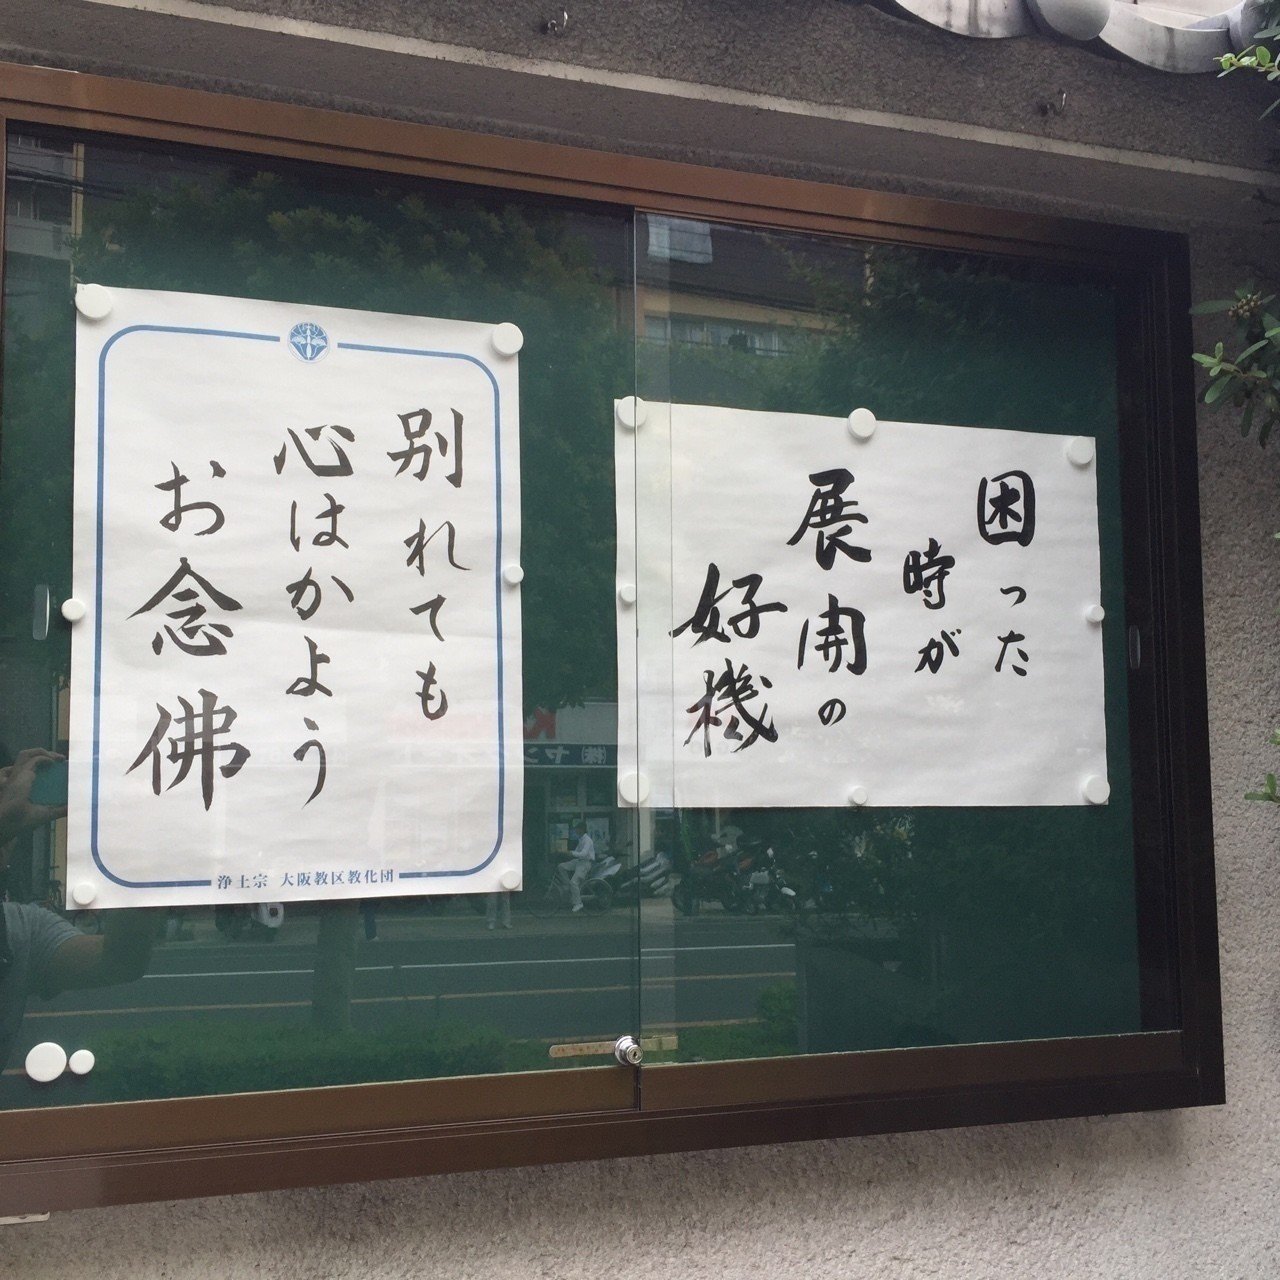 困った
時が
展開の
好機
別れても
心はかよう
お念佛
浄土宗 大阪教区教化団